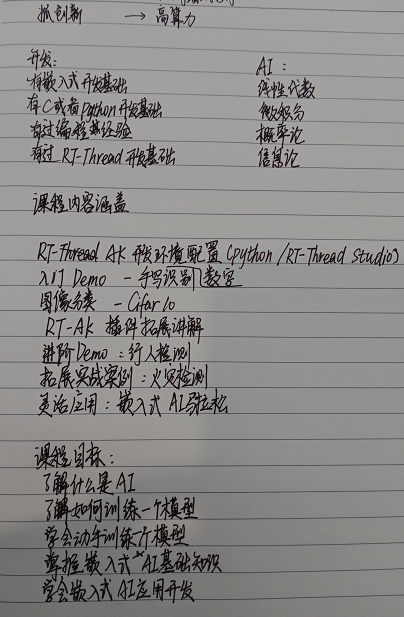 抓创新 → 高算力
开发：
有嵌入式开发基础
有C或者Python开发基础
有过编程经验
有过 RT-Thread 开发基础
AI：
线性代数
微积分
概率论
信息论
课程内容涵盖
RT-Thread AK 开发环境配置 (python / RT-Thread Studio)
入门 Demo - 手写识别数字
图像分类 - Cifar10
RT-AK 插件拓展讲解
进阶Demo：行人检测
拓展实战案例：火灾检测
灵活应用：嵌入式 AI马拉松
课程目标：
了解什么是AI
了解如何训练一个模型
学会动手训练一个模型
掌握嵌入式AI基础知识
学会嵌入式AI应用开发